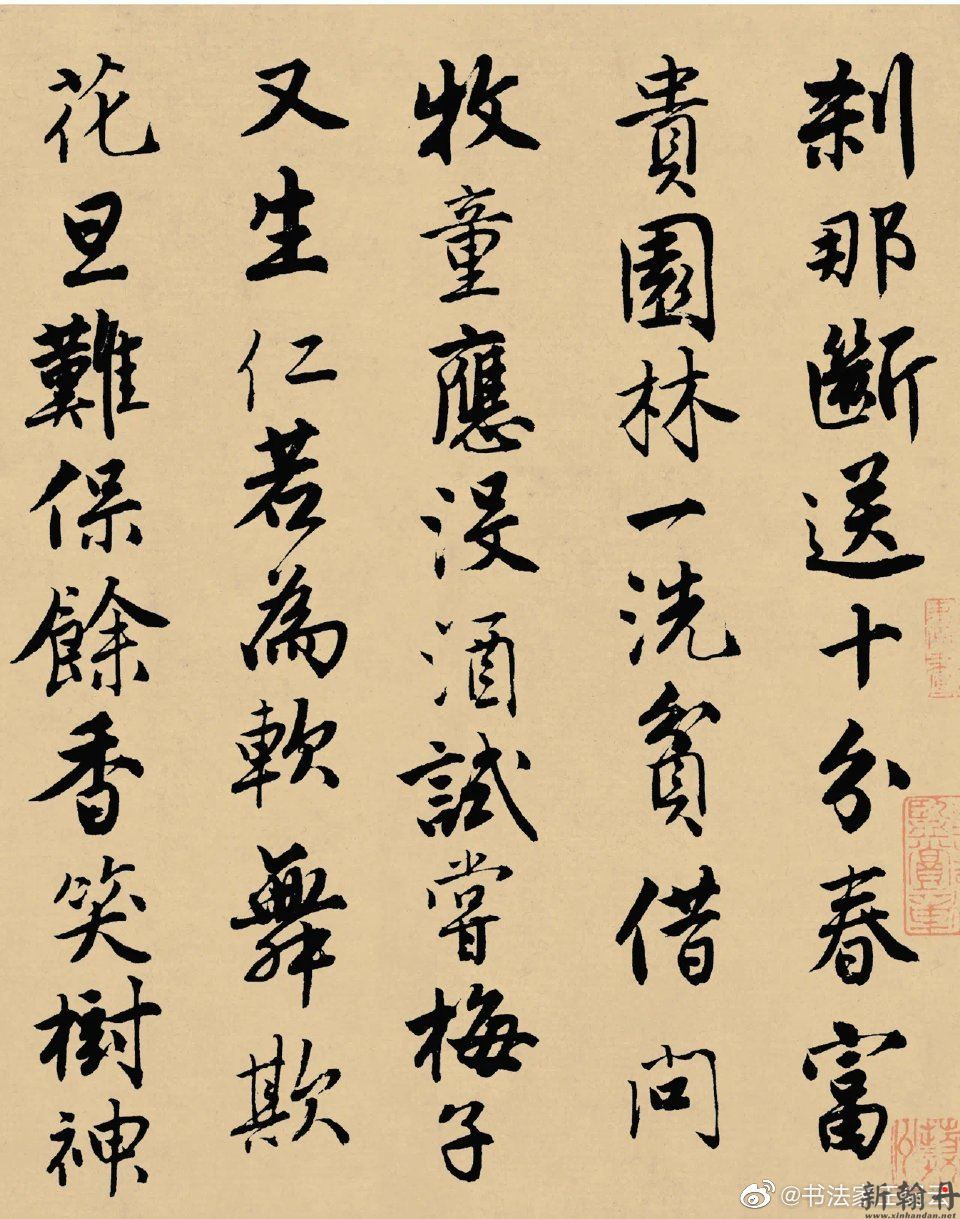 刹那斷送十分春富
貴園林一洗貧借問
牧童應没酒試嘗梅子
又生仁若為軟舞欺
花旦難保餘香笑樹神
@书法家
新翰丹
www.xinhandan.net